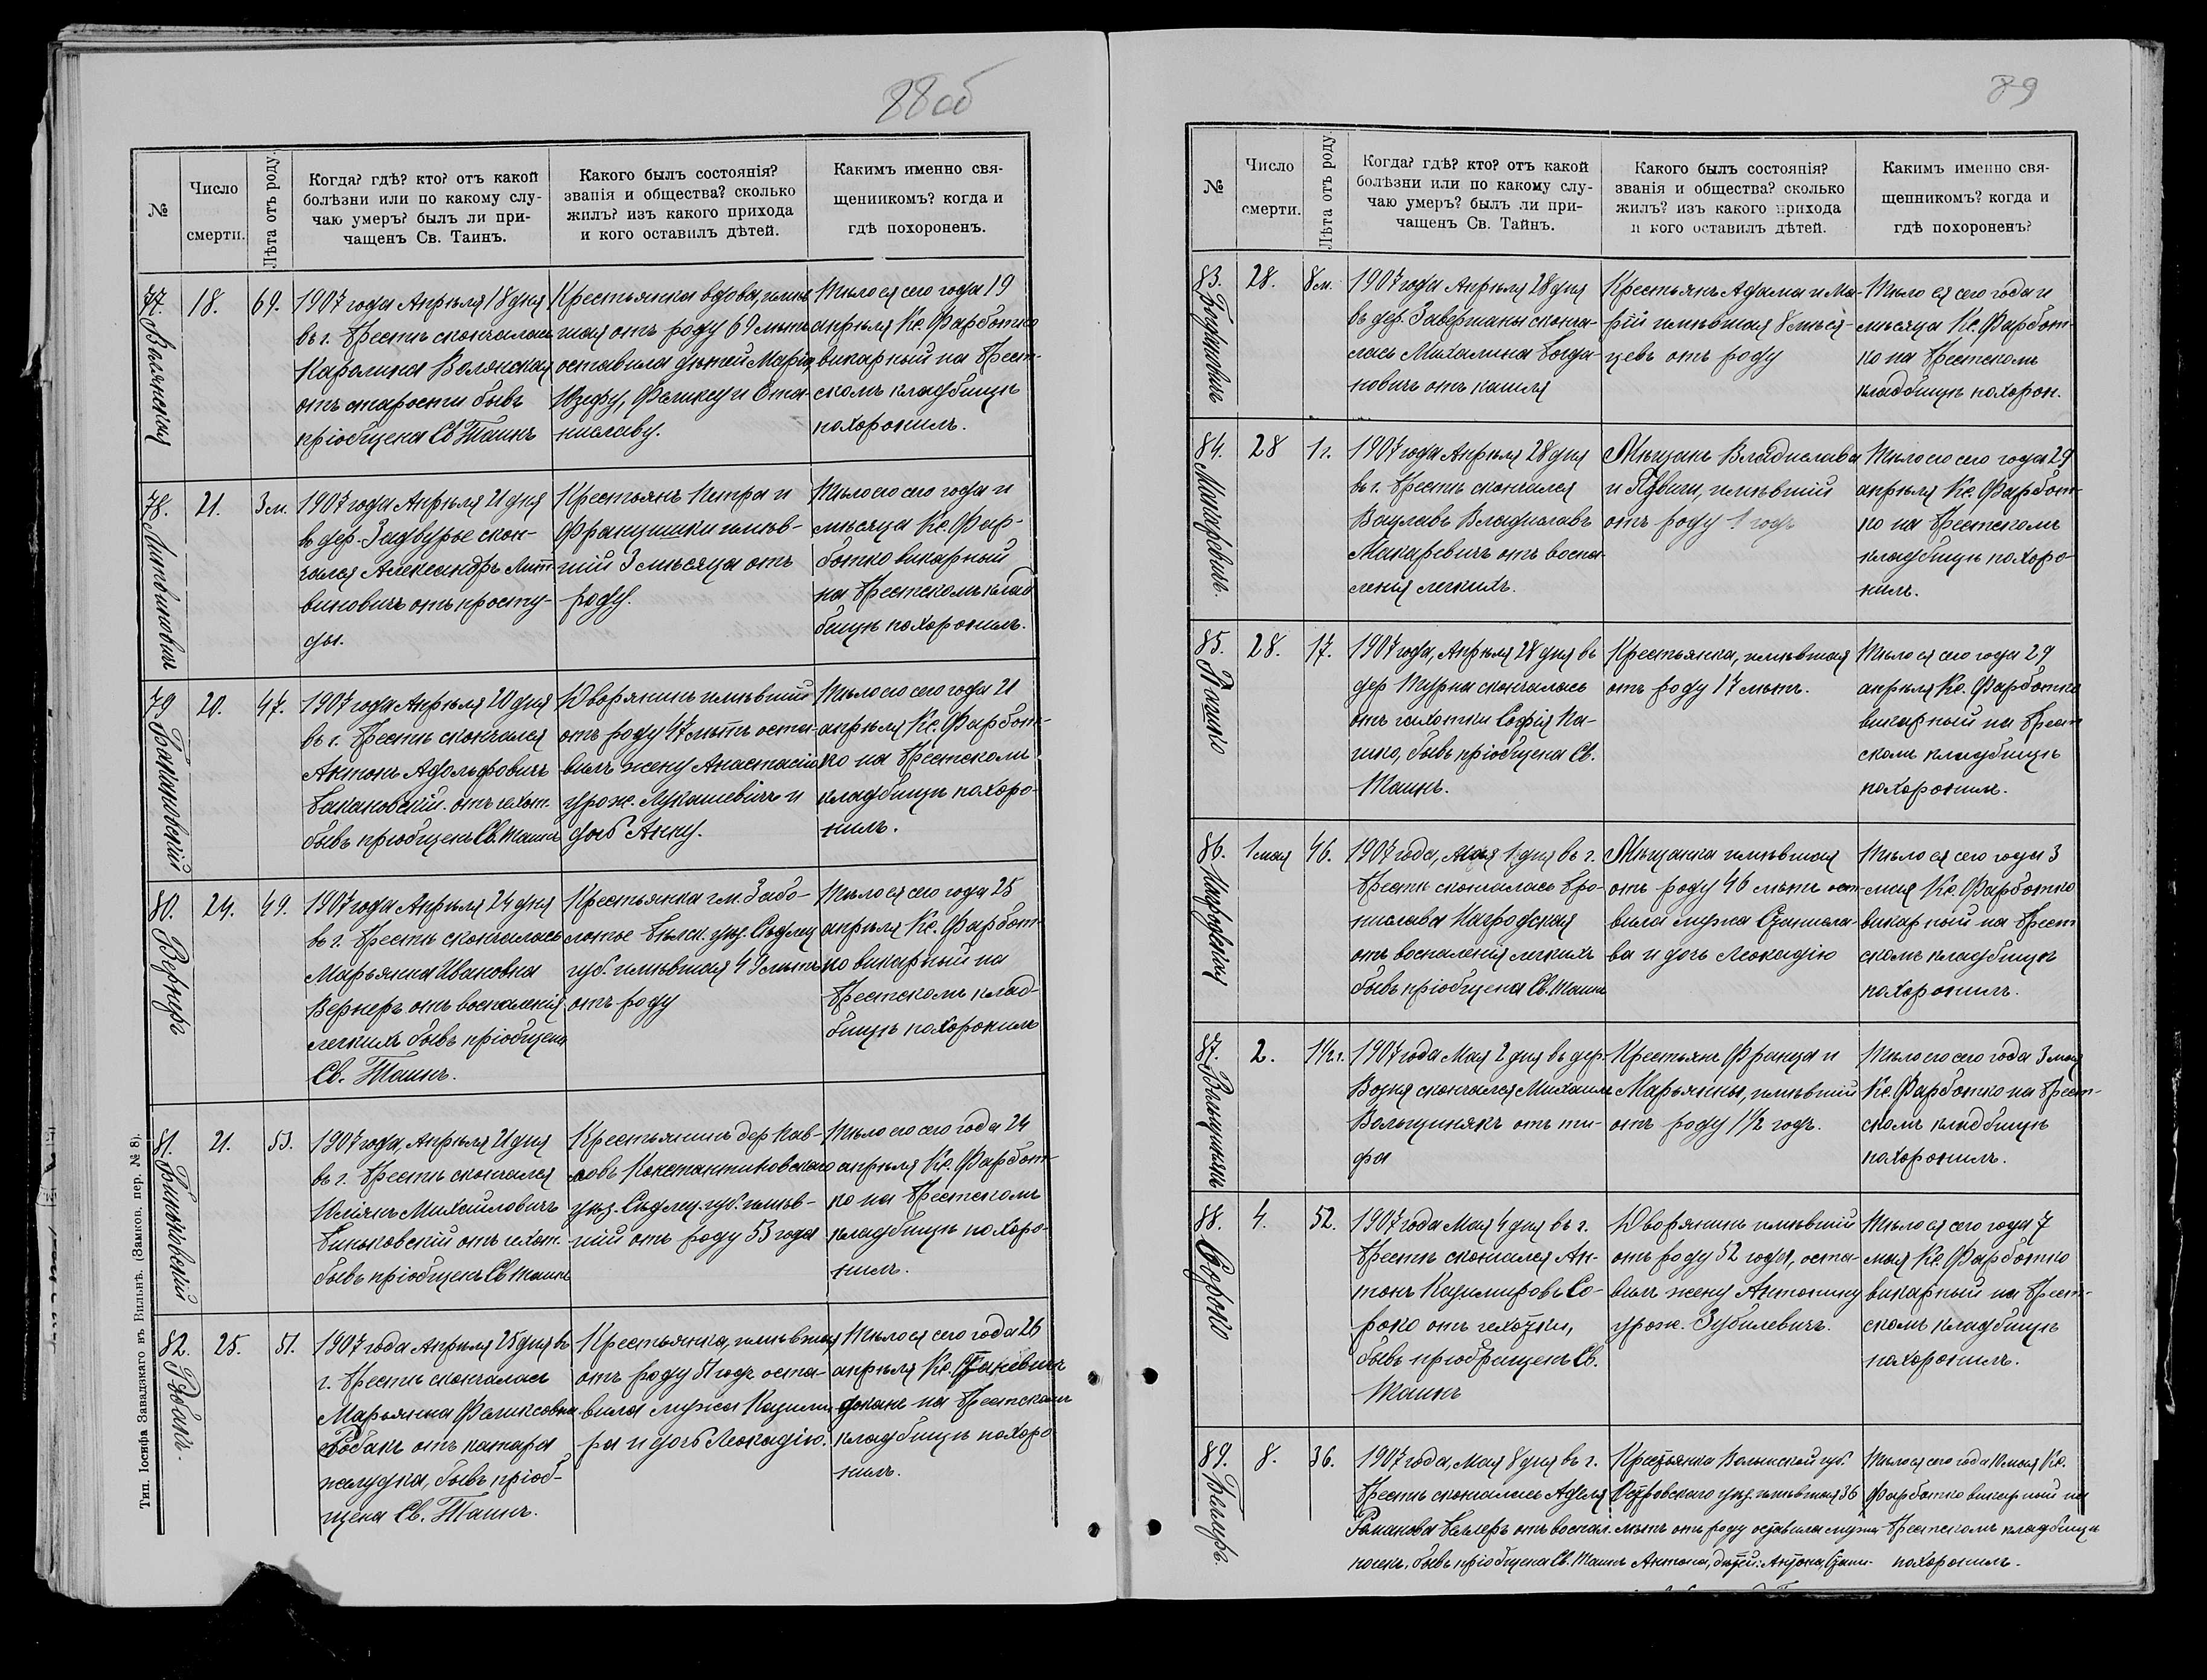 88 об
№
Число
смерти.
Лѣта отъ роду.
Когда? гдѣ? кто? отъ какой
болѣзни или по какому слу-
чаю умеръ? былъ ли при-
чащенъ Св. Таинъ.
Какого былъ состоянія?
званія и общества? сколько
жилъ? изъ какого прихода
и кого оставилъ дѣтей.
Какимъ именно свя-
щенникомъ? когда и
гдѣ похороненъ.
77. Волянская
18.
69.
1907 года Апрѣля 18 дня
въ г. Брестѣ скончалась
Каролина Волянская
отъ старости бывъ
пріобщена Св Таинъ
Крестьянка вдова, имѣв
шая отъ роду 69 лѣтъ
оставила дѣтей Марію,
Юзефу, Феликсу и Ста-
ниславу.
Тѣло ея сего года 19
апрѣля Кс. Фарботко
викарный на Брест-
скомъ кладбищѣ
похоронилъ.
78. Литвиновичъ
21.
3 м.
1907 года Апрѣля 21 дня
въ дер. Задвурье скон-
чался Александръ Лит
виновичъ отъ просту-
ды.
Крестьянъ Петра и
Францишки имѣв-
шій 3 мѣсяца отъ
роду.
Тѣло его сего года и
мѣсяца Кс. Фар-
ботко викарный
на Брестскомъ клад
бищѣ похоронилъ.
79. Бакановскій
20.
47.
1907 года Апрѣля 20 дня
въ г. Брестѣ скончался
Антонъ Адольфовичъ
Бакановскій отъ чахот.
бывъ пріобщенъ Св. Таинъ
Дворянинъ имѣвшій
отъ роду 47 лѣтъ оста-
вилъ жену Анастасію
урож. Лукашевичъ и
дочь Анну.
Тѣло его сего года 21
апрѣля Кс. Фарбот-
ко на Брестскомъ
кладбищѣ похоро-
нилъ.
80. Вернеръ
24.
49.
1907 года Апрѣля 24 дня
въ г. Брестѣ скончалась
Марьянна Ивановна
Вернеръ отъ воспаленія
легкихъ бывъ пріобщена
Св. Таинъ.
Крестьянка гм. Забо-
лотье Бѣльск. уѣз. Сѣдлец
губ. имѣвшая 49 лѣтъ
отъ роду
Тѣло ея сего года 25
апрѣля Кс. Фарбот-
ко викарный на
Брестскомъ клад-
бищѣ похоронилъ
81. Биньковскій
21.
53.
1907 года, Апрѣля 21 дня
въ г. Брестѣ скончался
Юліянъ Михайловичъ
Биньковскій отъ чахот.
бывъ пріобщенъ Св Таинъ
Крестьянинъ дер Пав-
ловъ Константиновскаго
уѣз. Сѣдлец. губ. имѣв-
шій отъ роду 53 года
Тѣло его сего года 24
апрѣля Кс. Фарбот-
ко на Брестскомъ
кладбищѣ похоро-
нилъ.
82. Рыбакъ.
25.
51.
1907 года Апрѣля 25 дня въ
г. Брестѣ скончалась
Марьянна Феликсовна
отъ катара
желудка, бывъ пріоб-
щена Св. Таинъ.
Крестьянка, имѣвшая
отъ роду 51 годъ оста-
вила мужа Казими
ра и дочь Леокадію.
Тѣло ея сего года 26
апрѣля Кс.
деканъ на Брестскомъ
кладбищѣ похоро
нилъ.
Тип. Іосифа Завадзкаго въ Вильнѣ. (Замков. пер. № 8).
89
№
Число
смерти.
Лѣта отъ роду.
Когда? гдѣ? кто? отъ какой
болѣзни или по какому слу-
чаю умеръ? былъ ли при-
чащенъ Св. Тайнъ.
Какого былъ состоянія?
званія и общества? сколько
жилъ? изъ какого прихода
и кого оставилъ дѣтей.
Какимъ именно свя-
щенникомъ? когда и
гдѣ похороненъ?
83. Богдановичъ
28.
8 м.
1907 года Апрѣля 28 дня
въ дер. Завершаны сконча-
лась Михалина Богда-
новичъ отъ кашля
Крестьянъ Адама и Ма-
ріи имѣвшая 8 мѣся-
цевъ отъ роду
Тѣло ея сего года и
мѣсяца Кс. Фарбот-
ко на Брестскомъ
кладбищѣ похорон.
84. Макаревичъ.
28
1 г.
1907 года Апрѣля 28 дня
въ г. Брестѣ скончался
Вацлавъ Владиславъ
Макаревичъ отъ воспа-
ленія легкихъ.
Мѣщанъ Владислава
и Ядвиги, имѣвшій
отъ роду 1 годъ
Тѣло его сего года 29
апрѣля Кс. Фарбот-
ко на Брестскомъ
кладбищѣ похоро-
нилъ.
85. Пашко
28.
17.
1907 года, Апрѣля 28 дня въ
дер Турна скончалась
отъ чахотки Софія Па-
шко, бывъ пріобщена Св.
Таинъ.
Крестьянка, имѣвшая
отъ роду 17 лѣтъ.
Тѣло ея сего года 29
апрѣля Кс. Фарботко
викарный на Брест
скомъ кладбищѣ
похоронилъ.
86. Нагродская
1 мая
46.
1907 года, Мая 1 дня въ г.
Брестѣ скончалась Бро-
нислава Нагродская
отъ воспаленія легкихъ
бывъ пріобщена Св. Таинъ
Мѣщанка имѣвшая
отъ роду 46 лѣтъ ост-
вила мужа Станисла-
ва и дочь Леокадію
Тѣло ея сего года 3
мая Кс. Фарботко
викарный на Брест
скомъ кладбищѣ
похоронилъ.
87. Вольщинякъ
2.
1½ г.
1907 года Мая 2 дня въ дер.
Возня скончался Михаилъ
Вольщинякъ отъ ти-
фа
Крестьянъ Франца и
Марьянны, имѣвшій
отъ роду 1½ годъ.
Тѣло его сего года 3 мая
Кс. Фарботко на Брест-
скомъ кладбищѣ
похоронилъ.
88. Сороко
4.
52.
1907 года Мая 4 дня въ г.
Брестѣ скончался Ан-
тонъ Казимировъ Со-
роко отъ чахотки,
бывъ пріобращенъ Св.
Таинъ
Дворянинъ имѣвшій
отъ роду 52 года, оста-
вилъ жену Антонину
урож. Зубилевичъ.
Тѣло ея сего года 7
мая Кс. Фарботко
викарный на Брест-
скомъ кладбищѣ
похоронилъ.
89. Беллеръ.
8.
36.
1907 года, Мая 8 дня въ г.
Брестѣ скончалась Аделя
Романова Беллеръ отъ воспал.
почекъ, бывъ пріобщена Св. Таинъ
Крестьянка Волынской губ.
уѣз. имѣвшая 36
лѣтъ отъ роду оставила мужа
Антона, дѣтей: Антона, Стани-
Тѣло ея сего года 10 мая Кс.
Фарботко викарный на
Брестскомъ кладбищѣ
похоронилъ.